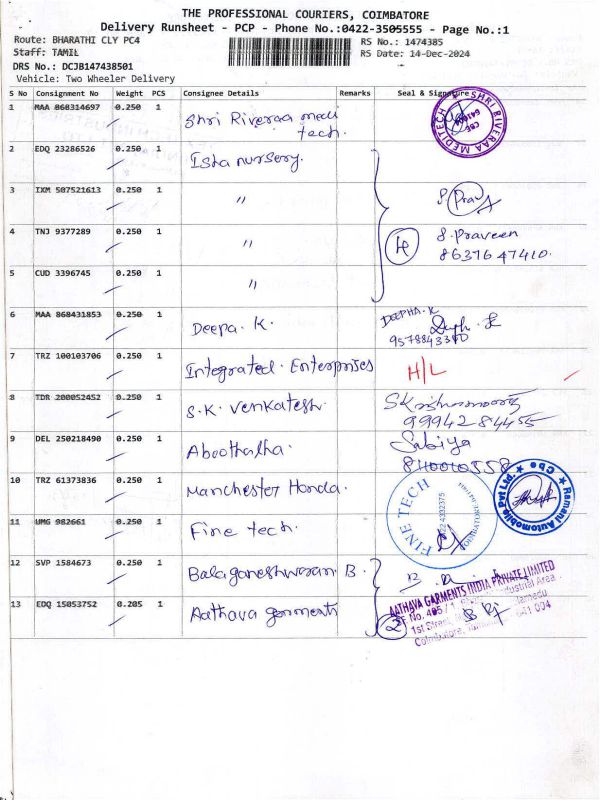 THE PROFESSIONAL COURIERS, COIMBATORE
Delivery Runsheet - PCP - Phone No.:0422-3505555 - Page No.:1
Route: BHARATHI CLY PC4
RS No.: 1474385
Staff: TAMIL
RS Date: 14-Dec-2024
DRS No.: DCJB147438501
Vehicle: Two Wheeler Delivery
S No Consignment No Weight PCS Consignee Details Remarks Seal & Signature
1 MAA 868314697 0.250 1 Shri Riveraa medi tech. SHRI RIVERAA MEDITECH CBE 641004
2 EDQ 23286526 0.250 1 Isha nursery.
3 IXM 507521613 0.250 1 "
4 TNJ 9377289 0.250 1 " 4 S. Praveen
8637647410.
5 CUD 3396745 0.250 1 "
6 MAA 868431853 0.250 1 Deepa. K. DEEPHA.K
7 TRZ 100103706 0.250 1 Integrated. Enterprises H/L
8 TDR 200052452 0.250 1 S.K. Venkatesh.
9994284455
9 DEL 250218490 0.250 1 Aboothalha. Sabiya
10 TRZ 61373836 0.250 1 Manchester Honda. Ramani Automobile Pvt Ltd. Cbe
11 UMG 982661 0.250 1 Fine tech. FINE TECH COIMBATORE
12 SVP 1584673 0.250 1 Balaganeshwaran B.
13 EDQ 15053752 0.205 1 Aathava garments 2
AATHAVA GARMENTS INDIA PRIVATE LIMITED
1st Street
641 004